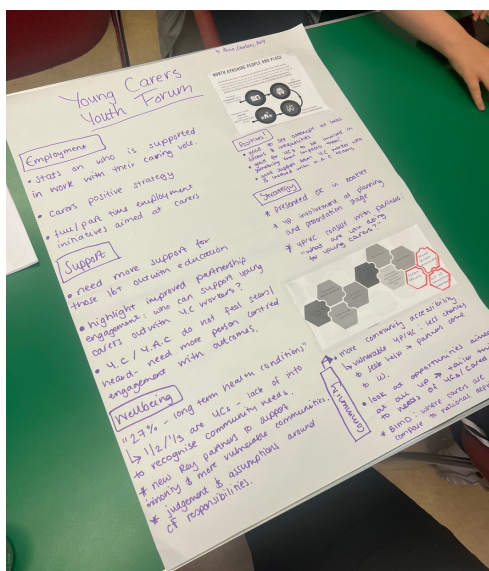 Young Carers
Youth Forum
Employment
• stats on who is supported
in work with their caring role.
• carers positive strategy
• full/part time employment
initiatives aimed at carers
Support
• need more support for
those 16+ outwith education
• highlight improved partnership
engagement: who can support young
carers outwith YC workers?
• Y.C / Y.A.C do not feel seen/
heard - need more person centred
engagement with outcomes.
Wellbeing
"27% - long term health conditions"
↳ 1/2/1/3 are YCs - lack of info
to recognise community needs.
* new Ray partners to support
minority & more vulnerable communities.
* judgement & assumptions around
of responsibilities.
NORTH AYRSHIRE PEOPLE AND PLACE
Positives!
• good to see attempt at less
• good for YCs to be involved in
something that impacts them
• good support from YC worker who
is involved with
Strategy
* presented OK in booklet
* YP involvement at planning
and presentation stage
* YP/YC consult with partners:
"what are you doing
for young carers?"
Community
* more community accessibility
↳ vulnerable YP/YC: less chances
to seek help → partners come
to U.
• look at opportunities aimed
at all YP → tailor
to needs of YCs/cared
* SIMD: where carers are
compare to national